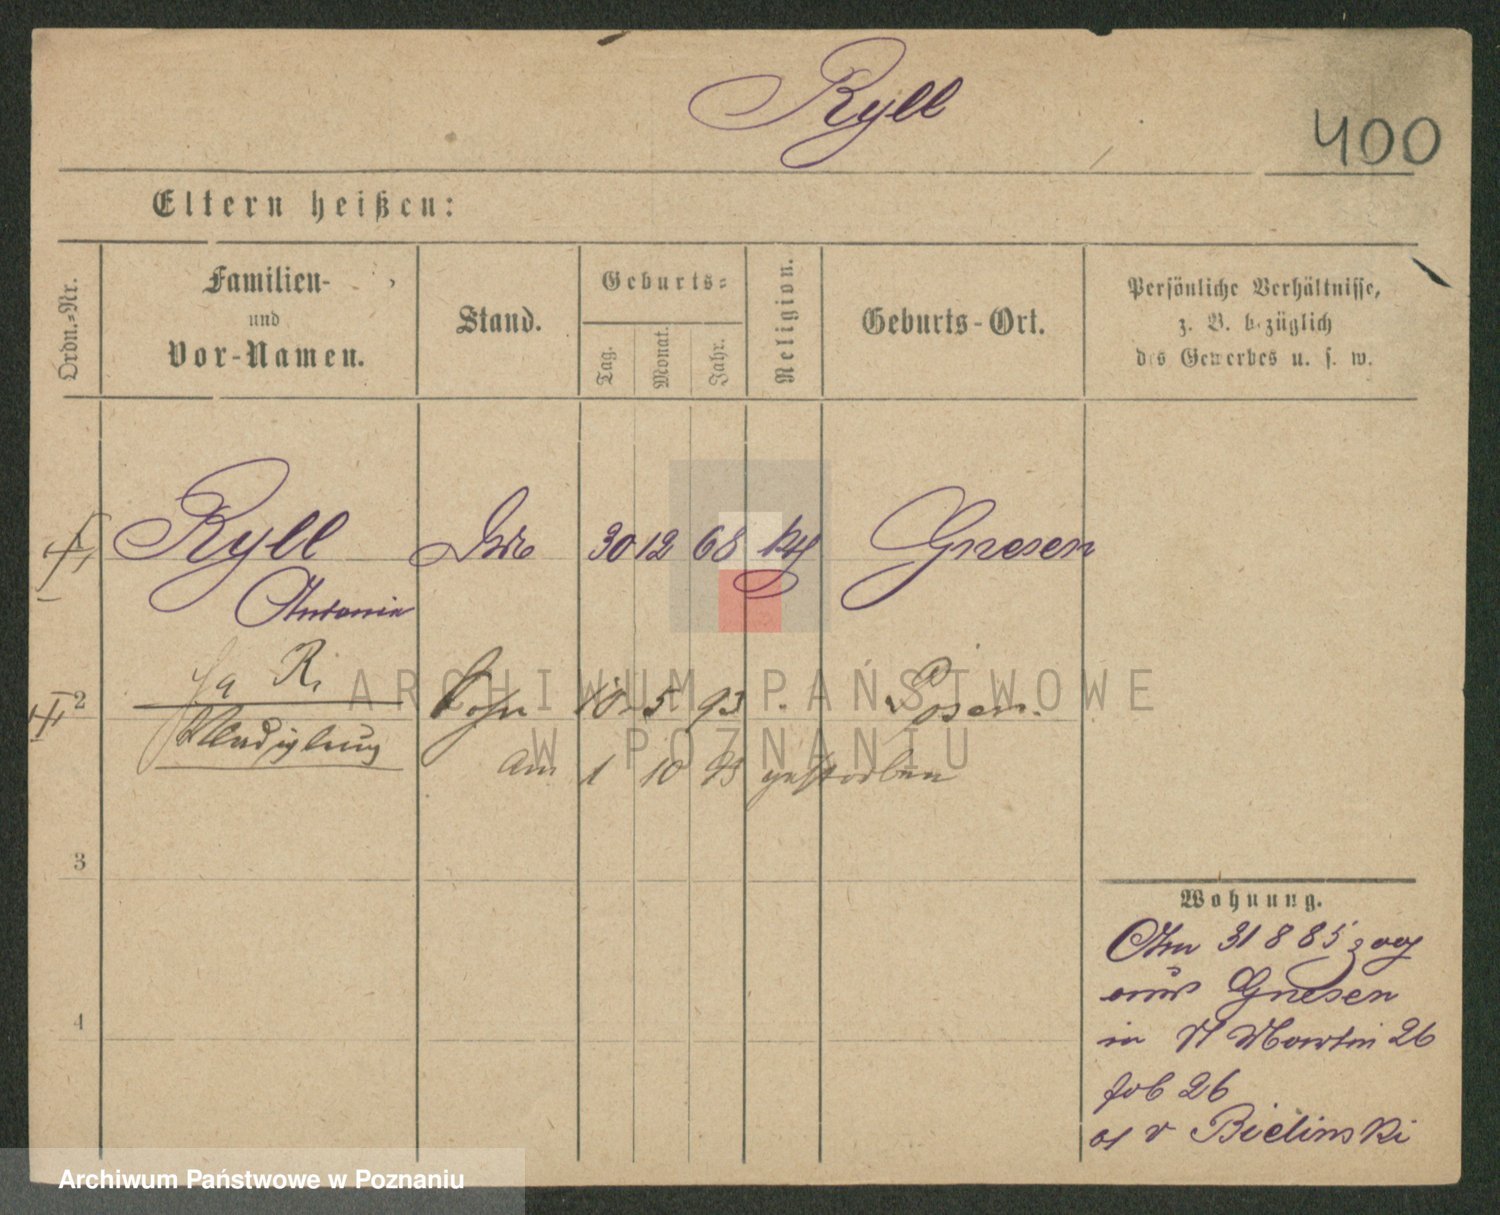 Ryll
400
Eltern heißen:
Ordn.-Nr.
Familien-
und
Vor-Namen.
Stand.
Geburts-
Tag.
Monat.
Jahr.
Religion.
Geburts-Ort.
Persönliche Verhältnisse,
z. B. bezüglich
des Gewerbes u. s. w.
Ryll 30 12 68 Gnesen
Antonia
2 Sohn 10 5 93 Posen.
am 1 10 93 gestorben
ARCHIWUM PAŃSTWOWE
W POZNANIU
3
4
Wohnung.
Am 31 8 85 zog
aus Gnesen
in St Martin 26
26
v Bielinski
Archiwum Państwowe w Poznaniu